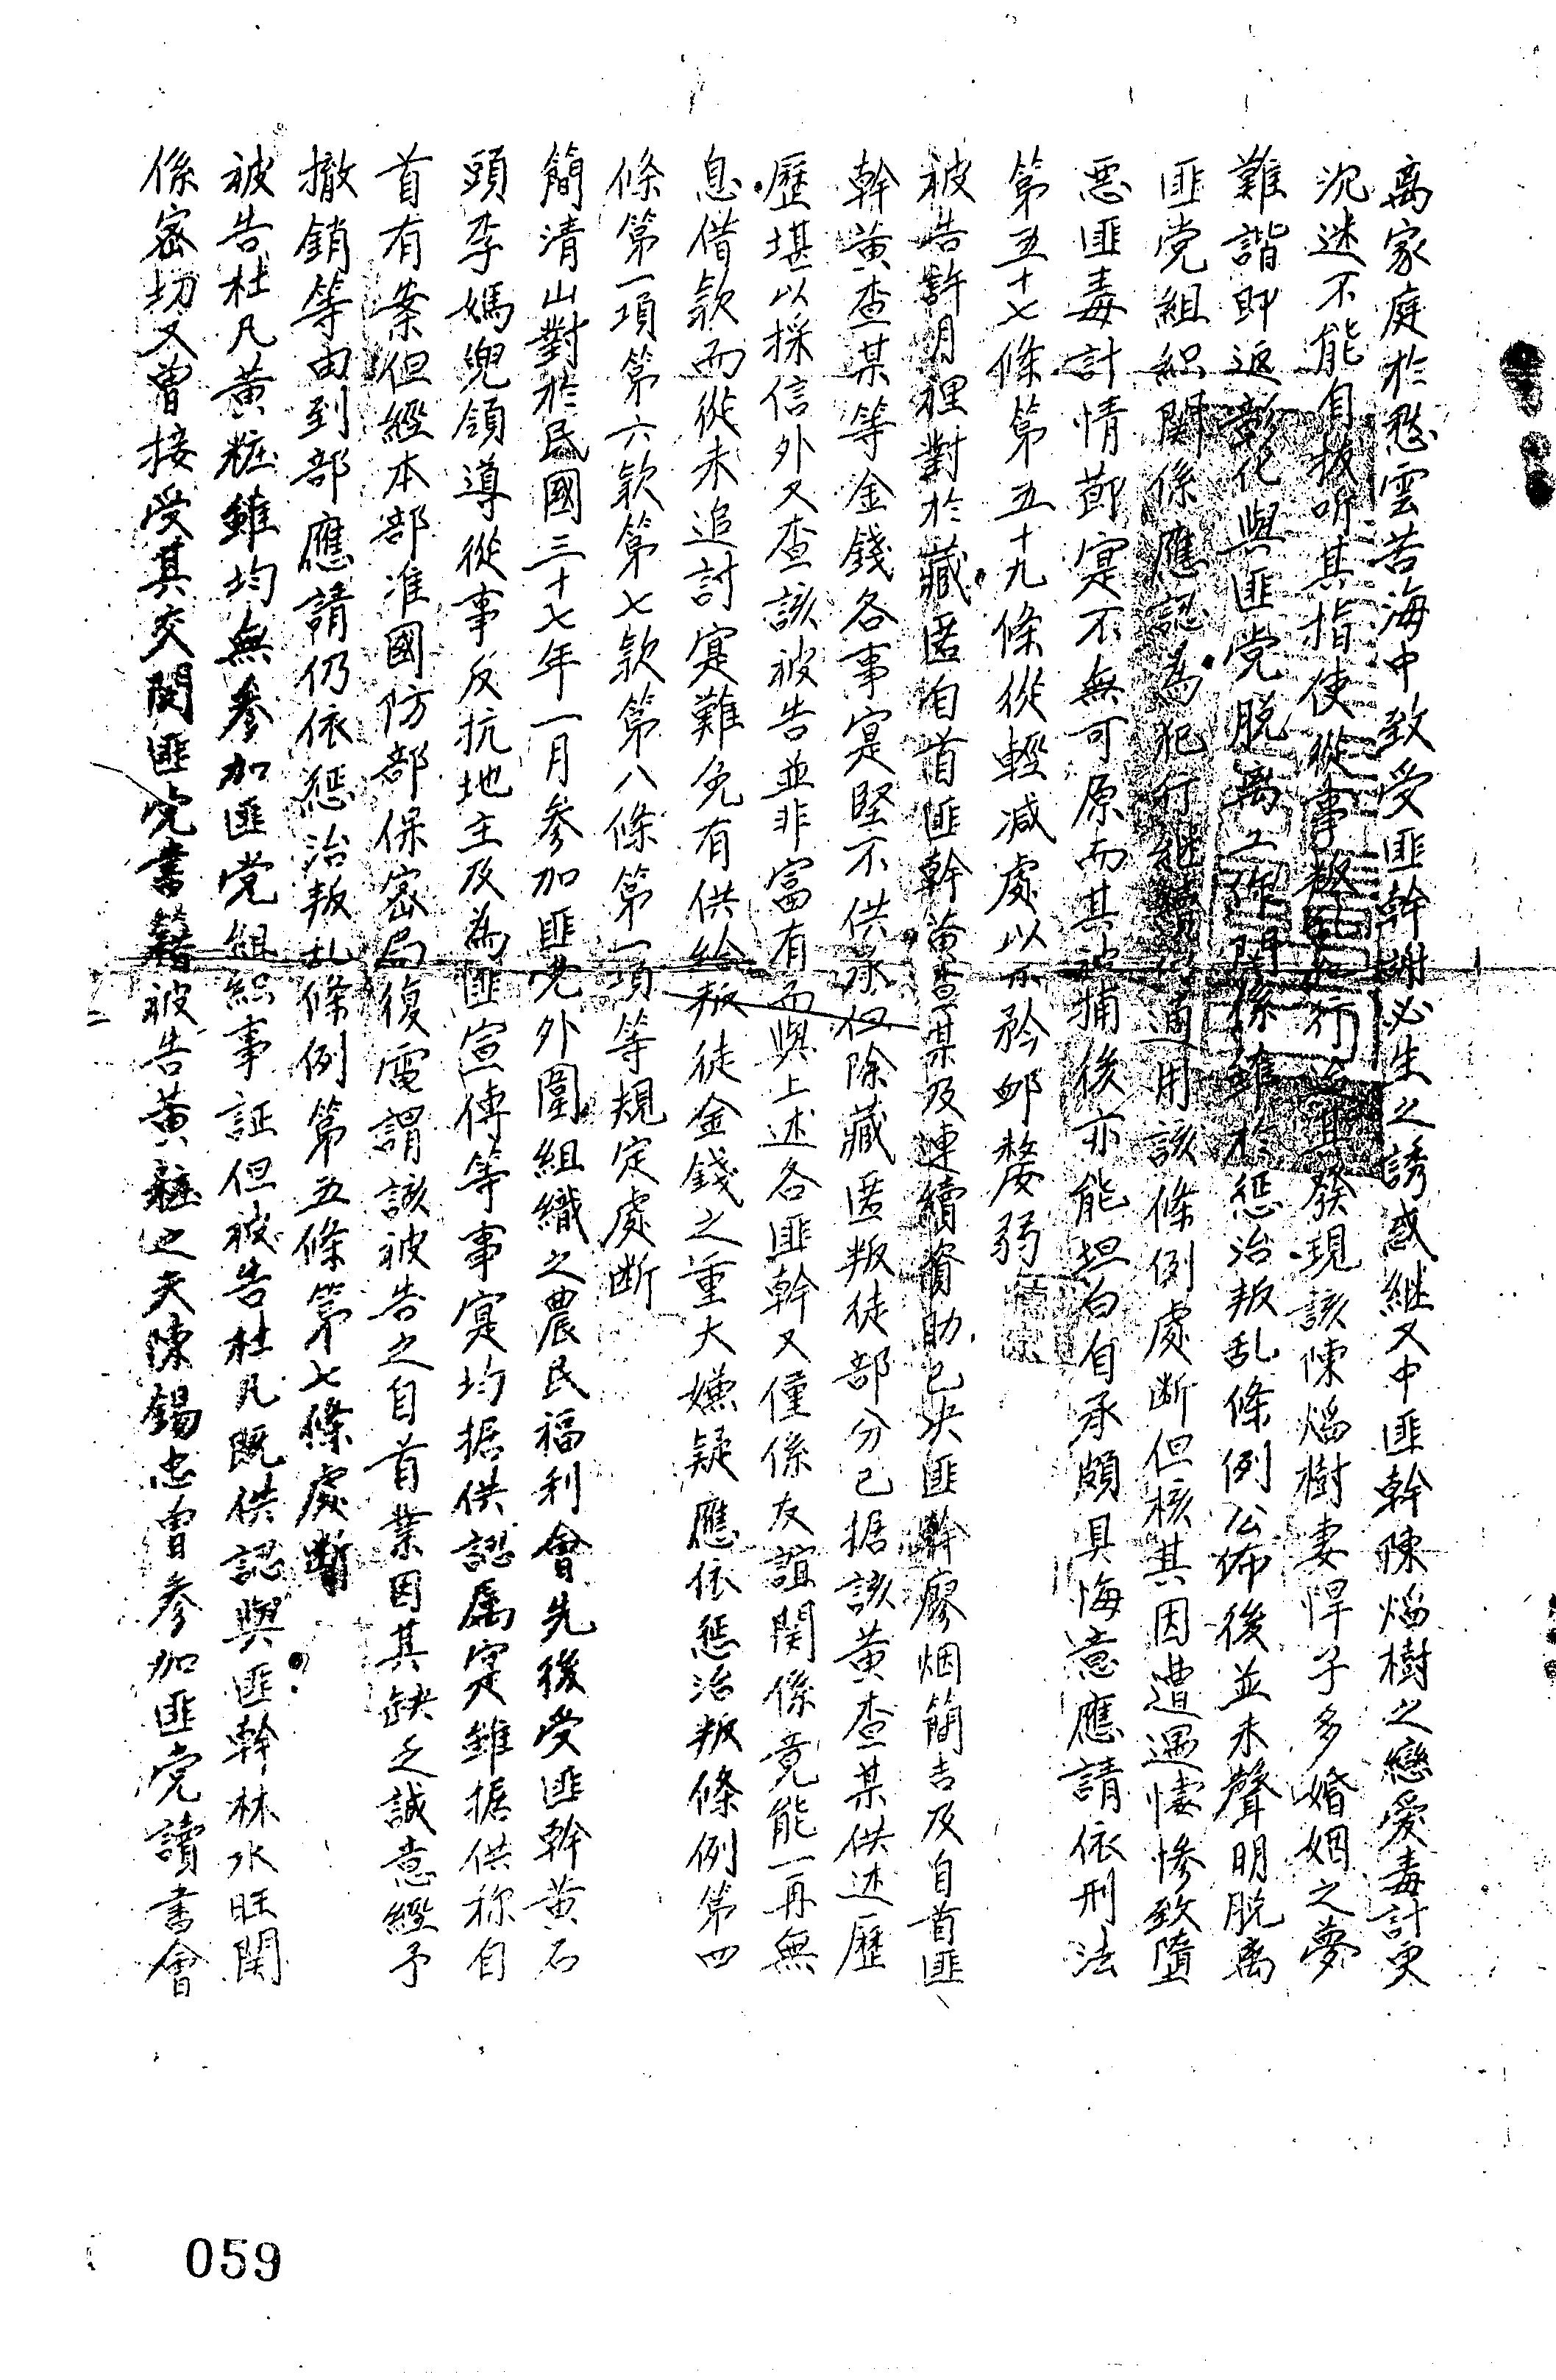 离家庭於愁雲苦海中致受匪幹謝必生之誘惑継又中匪幹陳焰樹之戀愛毒計更
沉迷不能自拔听其指使從事叛乱犯行迨其發現該陳焰樹妻悍子多婚姻之夢
難諧即返彰化與匪党脱离工作関係雖於懲治叛乱條例公佈後並未聲明脱离
匪党組織関係應認為犯行継續適用該條例處断但核其因遭遇悽惨致墮
惡匪毒計情節寔不無可原而其被捕後亦能坦白自承頗具悔意應請依刑法
第五十七條第五十九條從輕減處以示矜邮嫠弱
被告許月裡對於藏匿自首匪幹黄查某及連續資助已决匪幹廖烟簡吉及自首匪
幹黄查某等金錢各事寔堅不供承但除藏匿叛徒部分已据該黄查某供述歷
歷堪以採信外又查該被告並非富有而與上述各匪幹又僅係友誼関係竟能一再無
息借款而從未追討寔難免有供給叛徒金錢之重大嫌疑應依懲治叛條例第四
條第一項第六款第七款第八條第一項等規定處断
簡清山對於民國三十七年一月参加匪党外圍組織之農民福利會先後受匪幹黄石
頭李媽兜領導從事反抗地主及為匪宣傳等事寔均据供認属寔雖据供称自
首有案但經本部准國防部保密局復電謂該被告之自首業因其缺乏誠意經予
撤銷等由到部應請仍依懲治叛乱條例第五條第七條處断
被告杜凡黄粧雖均無参加匪党組織事証但被告杜凡既供認與匪幹林水旺関
係密切又曾接受其交閲匪党書籍被告黄粧之夫陳錫忠曾参加匪党讀書會
059